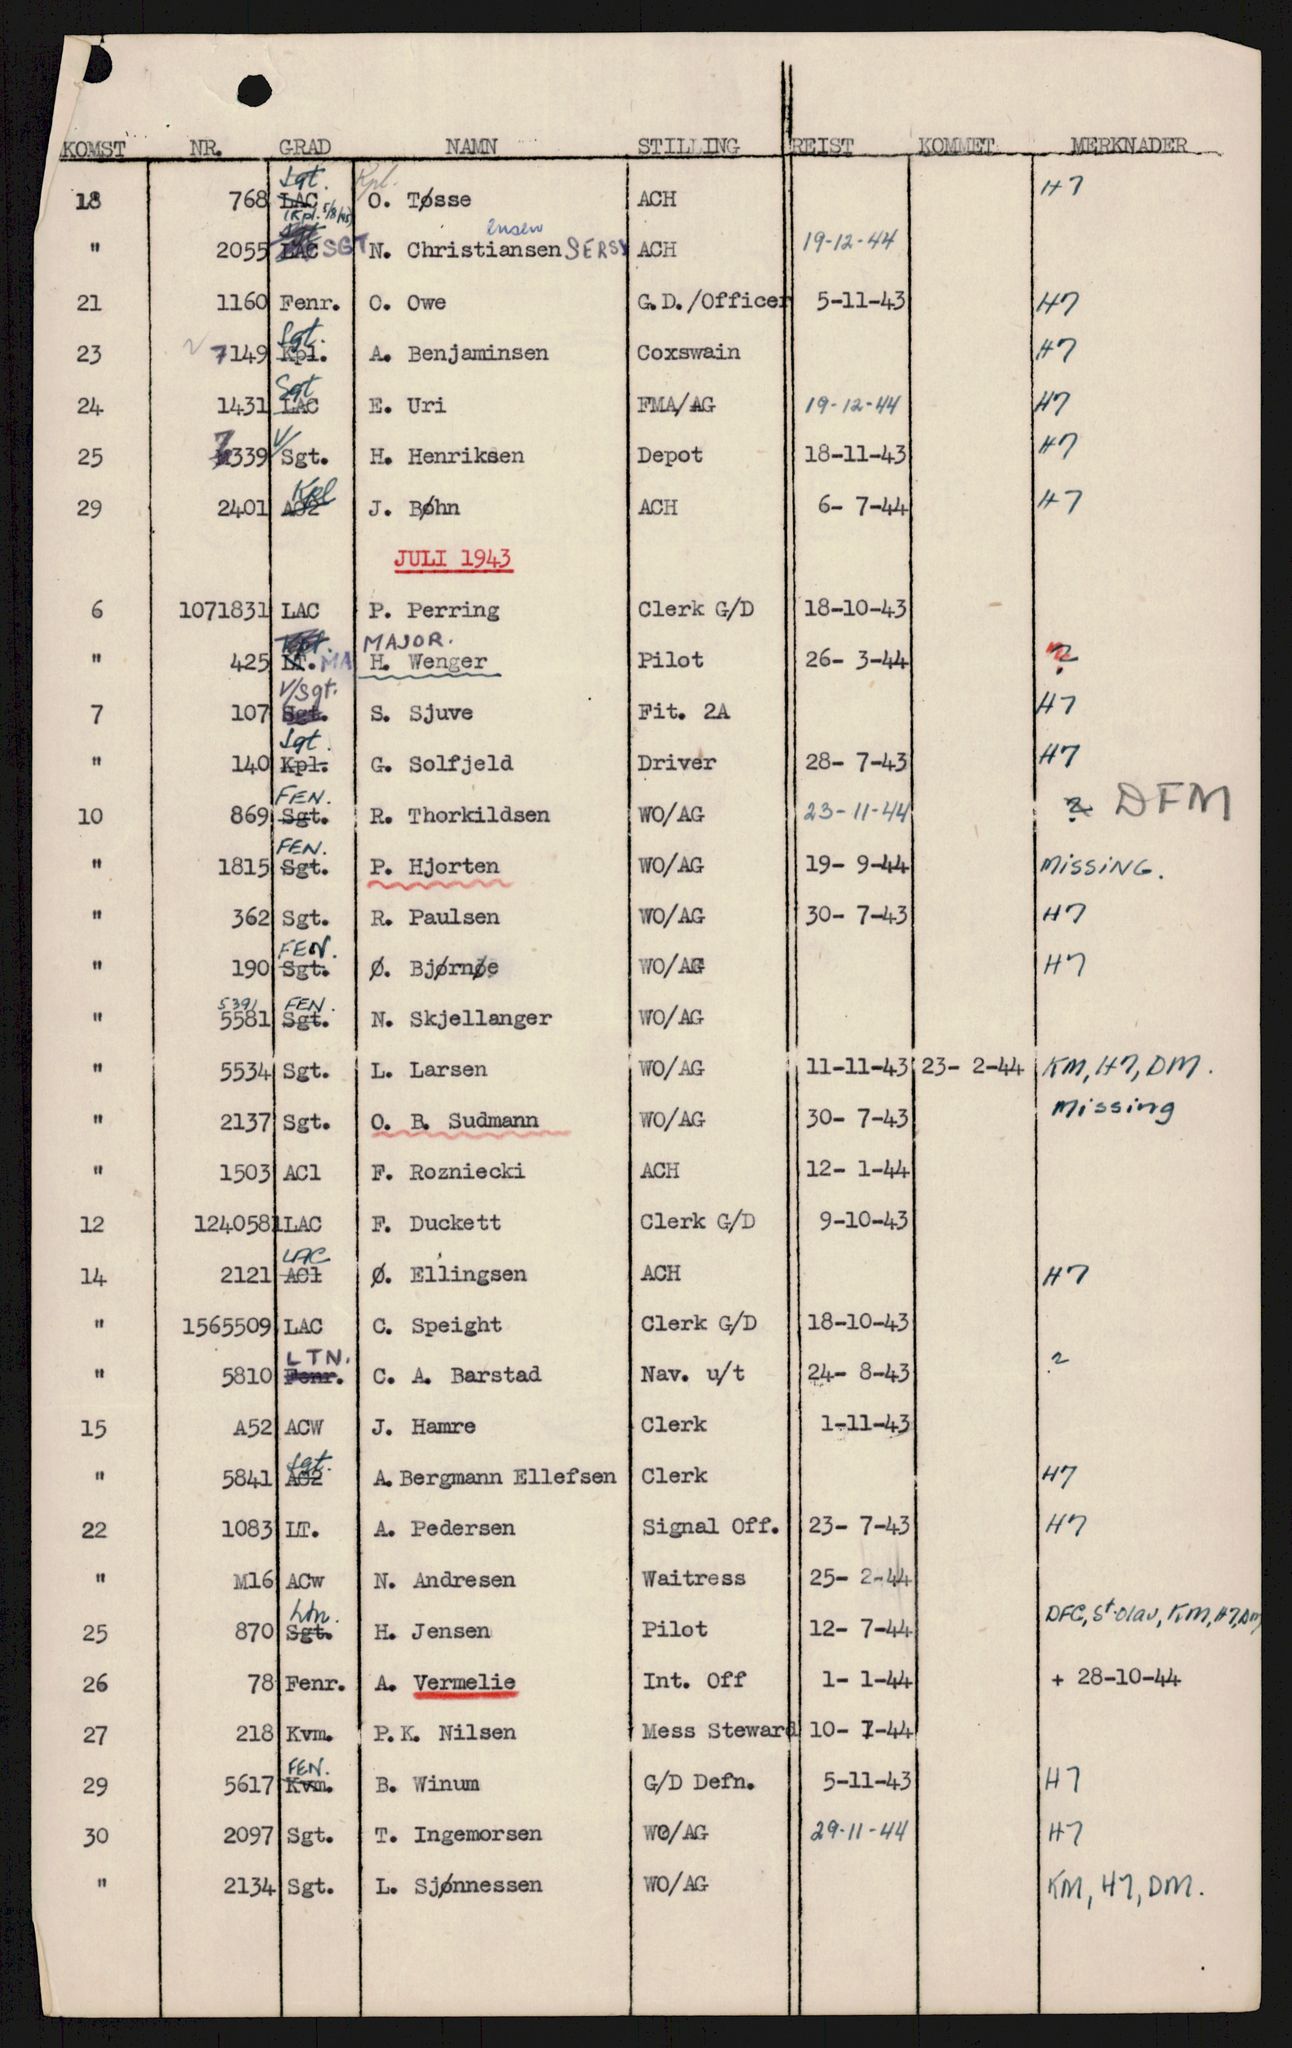 KOMST NR. GRAD NAMN STILLING REIST KOMMET MERKNADER
Sgt. Kpl.
18 768 LAC O. Tøsse ACH H7
(Kpl. 5/8/45)
ensen
" 2055 LAC SGT N. Christiansen SERSJ ACH 19-12-44
21 1160 Fenr. O. Owe G.D./Officer 5-11-43 H7
Sgt.
23 7149 Kpl. A. Benjaminsen Coxswain H7
Sgt
24 1431 LAC E. Uri FMA/AG 19-12-44 H7
V/
25 7339 Sgt. H. Henriksen Depot 18-11-43 H7
Kpl
29 2401 AC2 J. Bøhn ACH 6- 7-44 H7
JULI 1943
6 1071831 LAC P. Perring Clerk G/D 18-10-43
Kpt. MAJOR.
" 425 LT. MA H. Wenger Pilot 26- 3-44 ?
V/Sgt.
7 107 Sgt. S. Sjuve Fit. 2A H7
Sgt.
" 140 Kpl. G. Solfjeld Driver 28- 7-43 H7
FEN.
10 869 Sgt. R. Thorkildsen WO/AG 23-11-44 ? DFM
FEN.
" 1815 Sgt. P. Hjorten WO/AG 19- 9-44 MISSING.
" 362 Sgt. R. Paulsen WO/AG 30- 7-43 H7
FEN.
" 190 Sgt. Ø. Bjørnøe WO/AG H7
5391 FEN.
" 5581 Sgt. N. Skjellanger WO/AG
" 5534 Sgt. L. Larsen WO/AG 11-11-43 23- 2-44 KM, H7, DM.
" 2137 Sgt. O. B. Sudmann WO/AG 30- 7-43 Missing
" 1503 AC1 F. Rozniecki ACH 12- 1-44
12 1240581 LAC F. Duckett Clerk G/D 9-10-43
LAC
14 2121 AC1 Ø. Ellingsen ACH H7
" 1565509 LAC C. Speight Clerk G/D 18-10-43
LTN.
" 5810 Fenr. C. A. Barstad Nav. u/t 24- 8-43 ?
15 A52 ACW J. Hamre Clerk 1-11-43
Sgt.
" 5841 AC2 A. Bergmann Ellefsen Clerk H7
22 1083 LT. A. Pedersen Signal Off. 23- 7-43 H7
" M16 ACw N. Andresen Waitress 25- 2-44
Ltn.
25 870 Sgt. H. Jensen Pilot 12- 7-44 DFC, St.Olav, KM, H7, DM
26 78 Fenr. A. Vermelie Int. Off 1- 1-44 + 28-10-44
27 218 Kvm. P.K. Nilsen Mess Steward 10- 1-44
FEN.
29 5617 Kvm. B. Winum G/D Defn. 5-11-43 H7
30 2097 Sgt. T. Ingemorsen WO/AG 29-11-44 H7
" 2134 Sgt. L. Sjønnessen WO/AG KM, H7, DM.